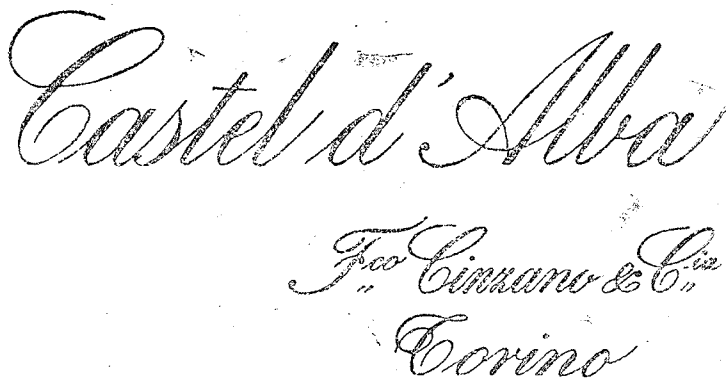 Castel d'Alba
F.co Cinzano & C.ia
Torino